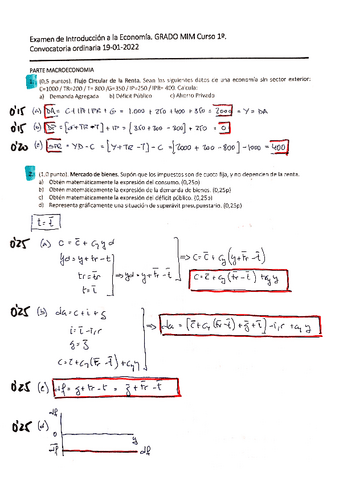 Examen de Introducción a la Economía. GRADO MIM Curso 1º.
Convocatoria ordinaria 19-01-2022
PARTE MACROECONOMIA
1. (0,5 puntos). Flujo Circular de la Renta. Sean los siguientes datos de una economía sin sector exterior:
C=1000 / TR=200 / T= 800 /G=350 / IP=250 / IPR= 400. Calcula:
a) Demanda Agregada b) Déficit Público c) Ahorro Privado
0'15 (a) DA = C+IP+IPR+G = 1.000 + 250 + 400 + 350 = 2000 = Y = DA
0'15 (b) DP = [G+TR-T]+IP = [350+200-800]+250 = 0
0'20 (c) = YD - C = [Y+TR-T]-C = [2000+200-800]-1000 = 400
2. (1,0 punto). Mercado de bienes. Supón que los impuestos son de cuota fija, y no dependen de la renta.
a) Obtén matemáticamente la expresión del consumo. (0,25p)
b) Obtén matemáticamente la expresión de la demanda de bienes. (0,25p)
c) Obtén matemáticamente la expresión del déficit público. (0,25p)
d) Represente gráficamente una situación de superávit presupuestario. (0,25p)
t = t̄
0'25 (a) c = c̄ + c_y yd
yd = y + tr - t
tr = t̄r
t = t̄
⇒ yd = y + t̄r - t̄
⇒ c = c̄ + c_y (y + t̄r - t̄)
c = c̄ + c_y (t̄r - t̄) + c_y y
0'25 (b) da = c + i + g
i = ī - i_r r
g = ḡ
c = c̄ + c_y (t̄r - t̄) + c_y y
⇒ da = [c̄ + c_y (t̄r - t̄) + ḡ + ī] - i_r r + c_y y
0'25 (c) df = g + tr - t = ḡ + t̄r - t̄
0'25 (d) df
y
df